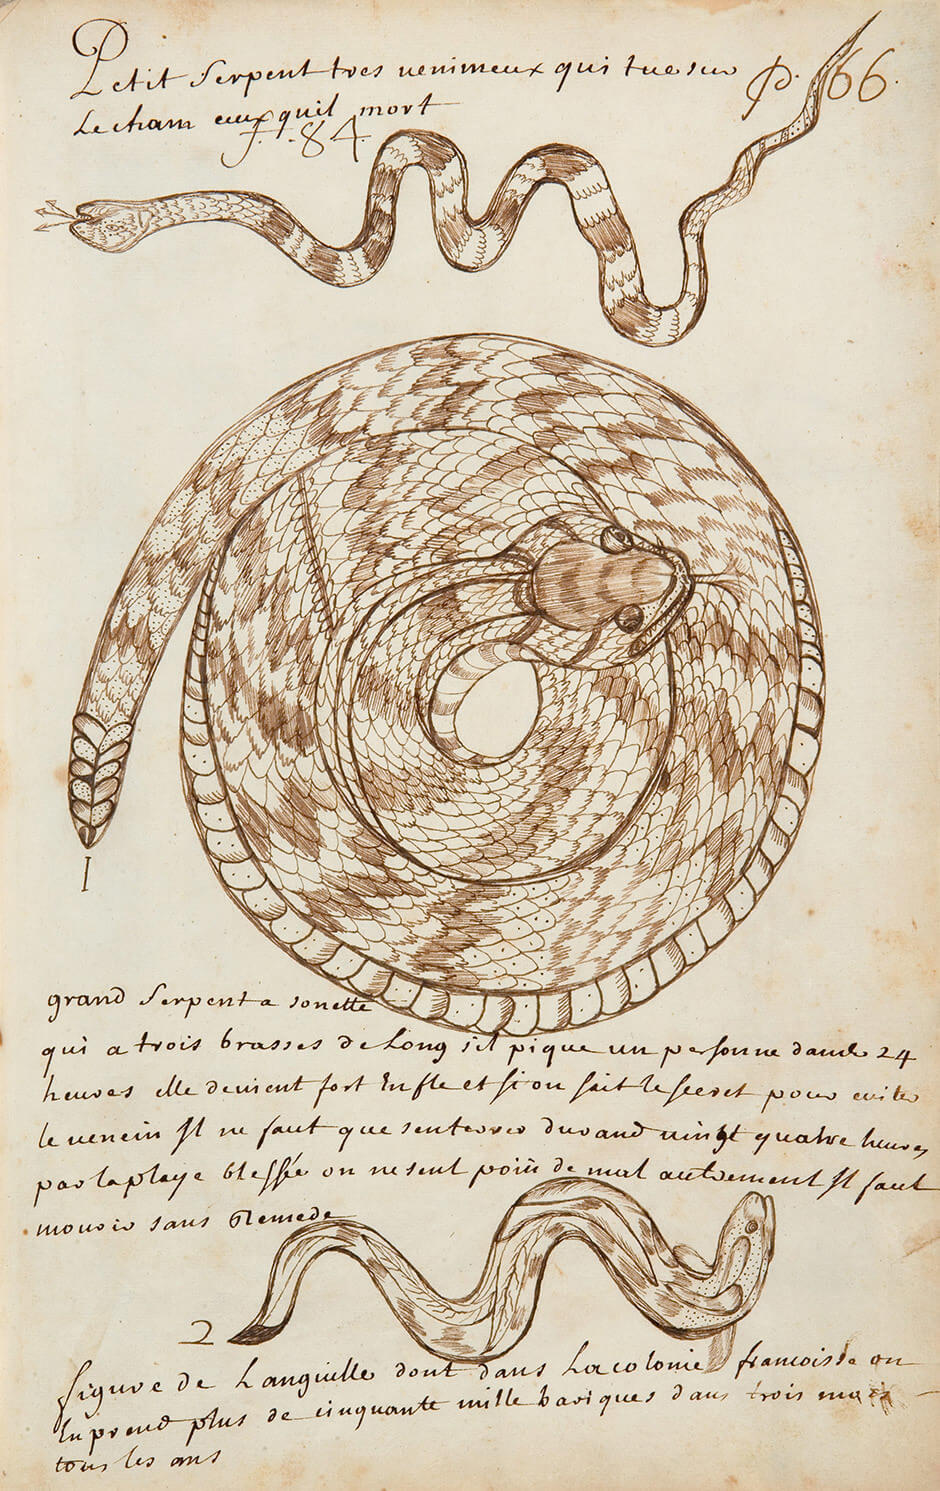 Petit Serpent tres uenimeux qui tue sur
Le cham ceux quil mort
P. 66.
f. 84.
I
grand Serpent a sonette
qui a trois brasses de Long sil pique un personne dans 24
heures elle deuient fort Enfle et si on sait le secret pour euiter
le uenein Il ne faut que senterrer durand uingt quatre heures
par la playe blessée on ne sent poin de mal autrement Il faut
mourir sans Remede
2
figure de Languille dont dans La colonie francoisse on
En prend plus de cinquante mille bariques dans trois mois
tous les ans